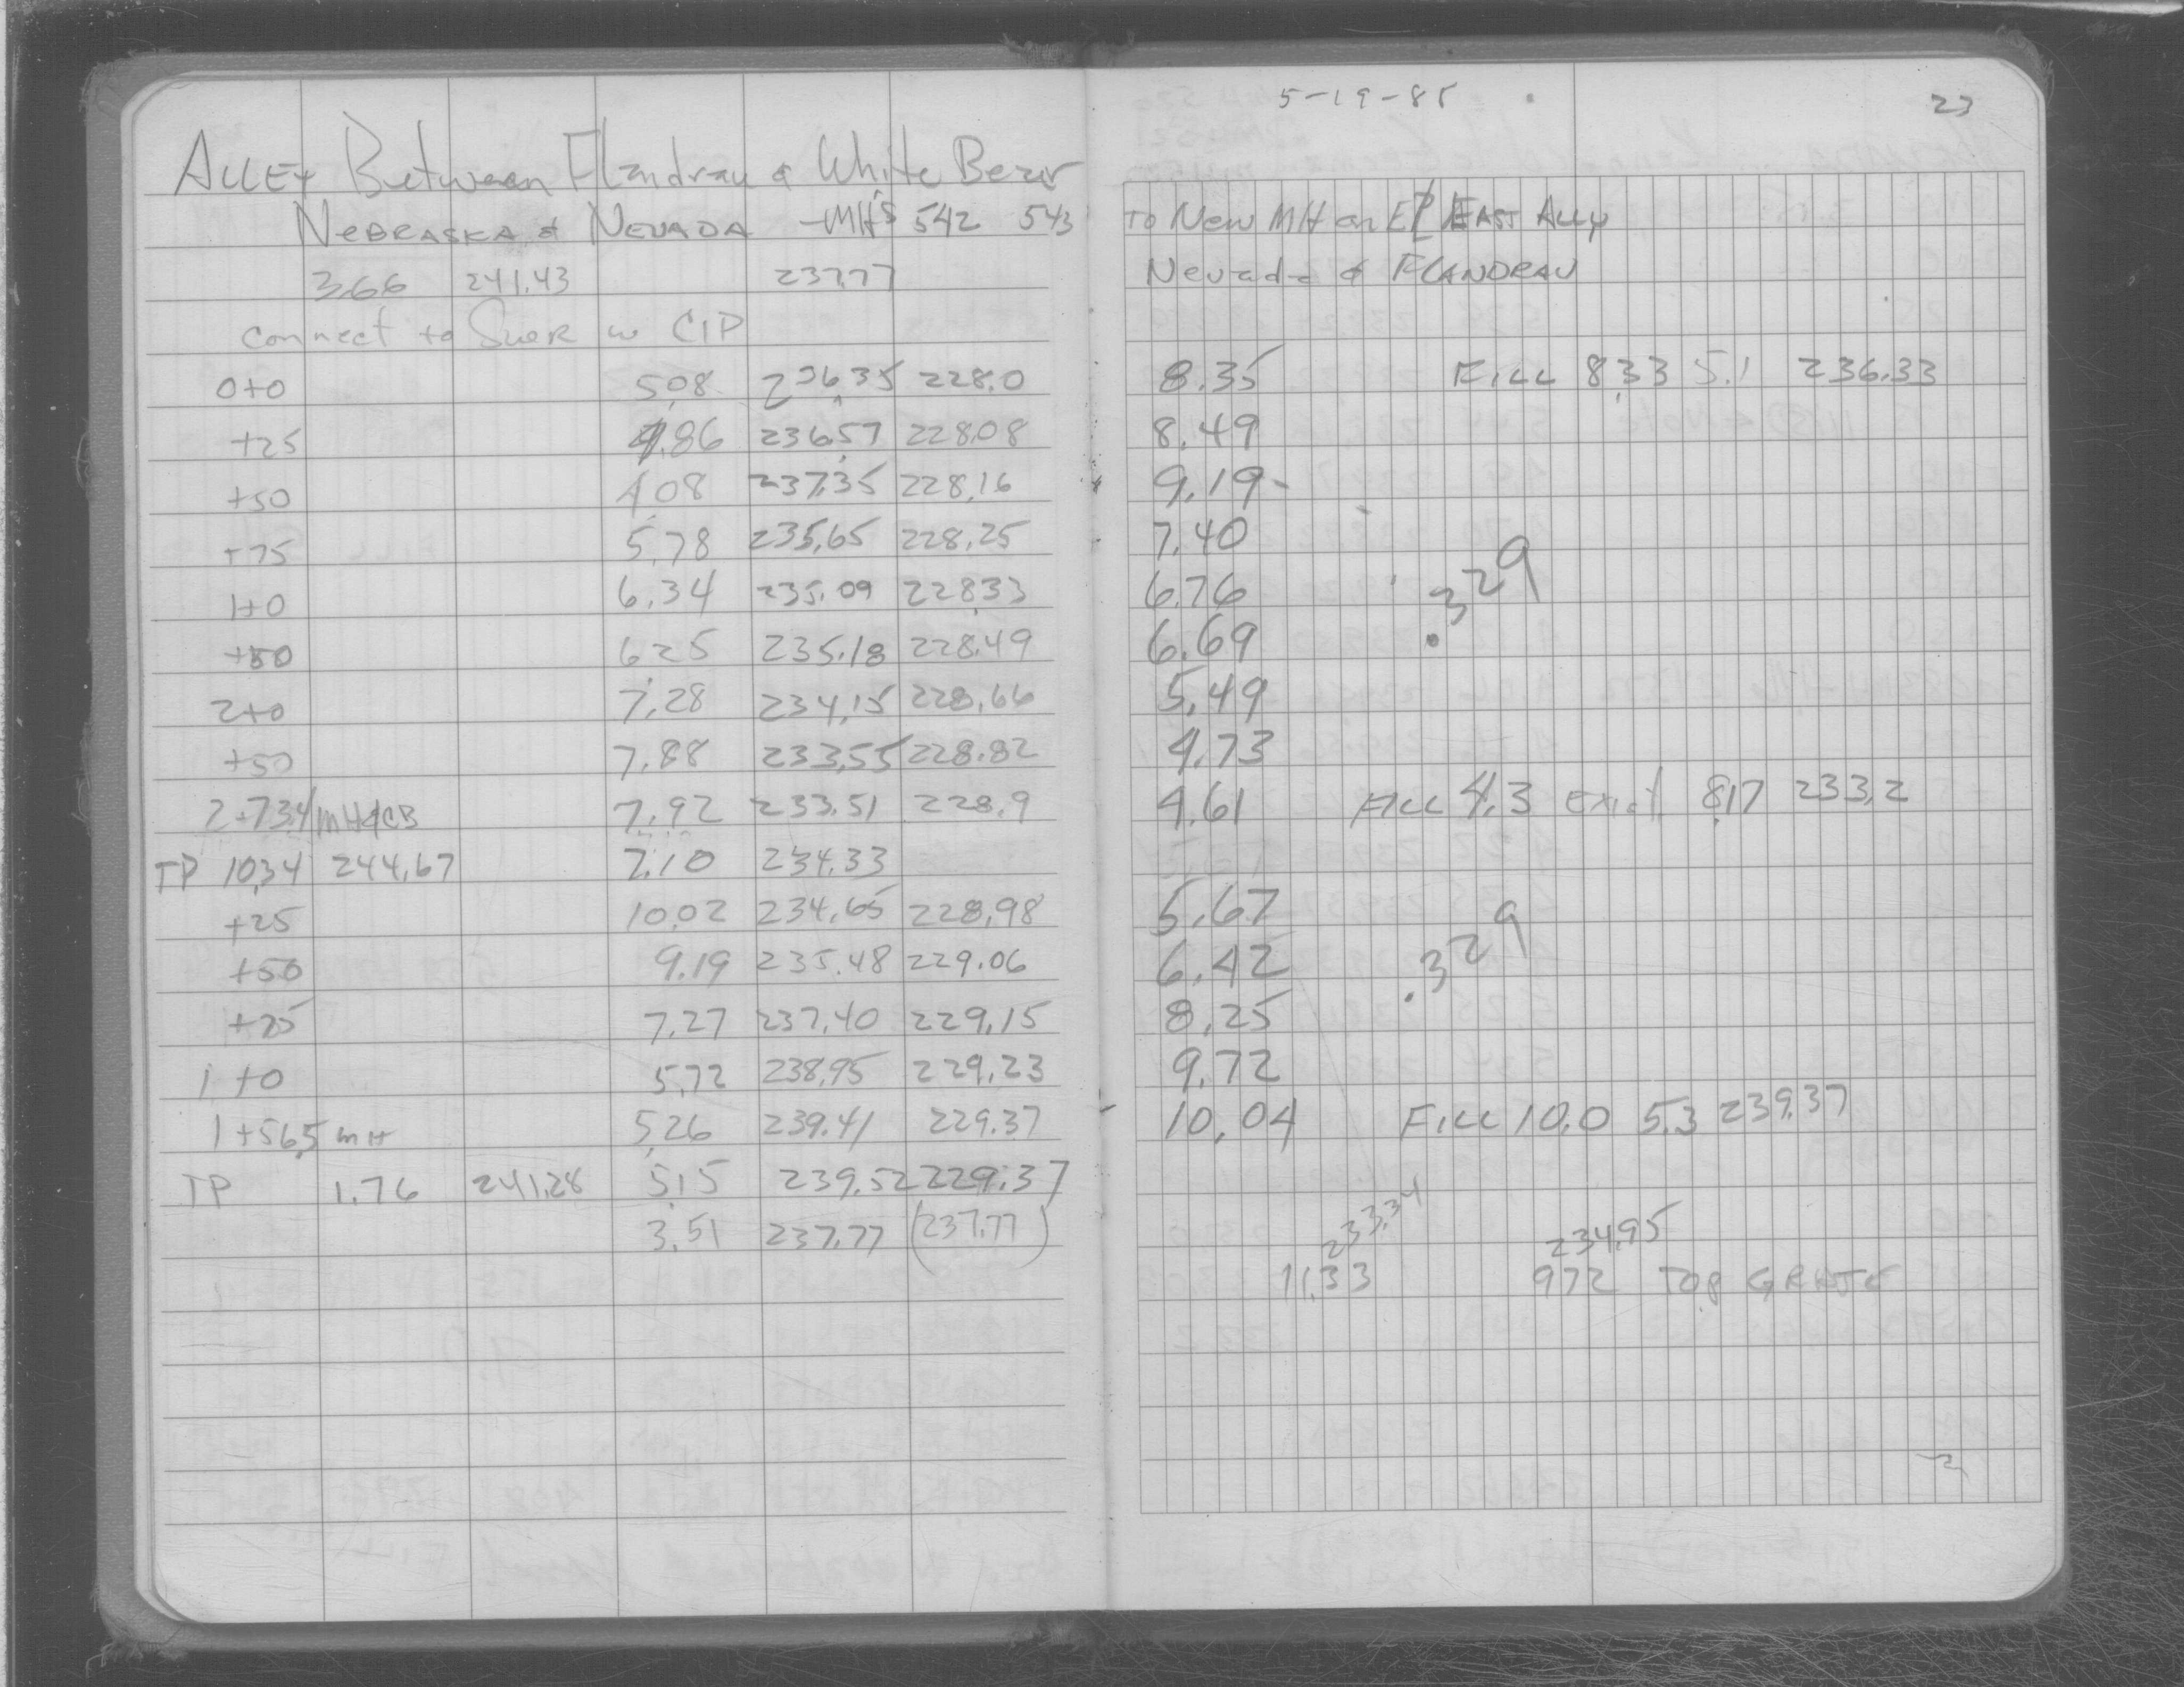 5-19-85
23
Alley Between Flandrau & White Bear
Nebraska & Nevada - MH's 542 543
To New MH on EP/ East Ally
Nevada & Flandrau
3.66 241.43 237.77
Connect to Suer w CIP
0+0 5.08 236.35 228.0 8.35 Fill 8.33 5.1 236.33
+25 4.86 236.57 228.08 8.49
+50 4.08 237.35 228.16 9.19-
+75 5.78 235.65 228.25 7.40
1+0 6.34 235.09 228.33 6.76 .329
+50 6.25 235.18 228.49 6.69
2+0 7.28 234.15 228.66 5.49
+50 7.88 233.55 228.82 4.73
2+73.4 MH&CB 7.92 233.51 228.9 4.61 Fill 4.3 Exist. 8.17 233.2
TP 10.34 244.67 7.10 234.33
+25 10.02 234.65 228.98 5.67
+50 9.19 235.48 229.06 6.42 .329
+75 7.27 237.40 229.15 8.25
1+0 5.72 238.95 229.23 9.72
1+56.5 MH 5.26 239.41 229.37 10.04 Fill 10.0 5.3 239.37
TP 1.76 241.28 5.15 239.52 229.37
3.51 237.77 (237.77)
233.34 234.95
11.33 972 Top Grate